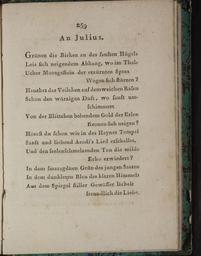 259
An Julius.
Grünen die Birken an des sanften Hügels
Leis sich neigendem Abhang, wo im Thale
Ueber Moosgestein der erzürnten Spree
Wogen sich thürmen?
Hauchet das Veilchen auf dem weichen Rasen
Schon den würzigen Duft, wo sanft um-
schimmert
Von der Blüthchen bebendem Gold der Erlen
Kronen sich neigen?
Hörst du schon wie in des Haynes Tempel
Sanft und liebend Aëdi's Lied erschallet,
Und den seelenschmelzenden Ton die milde
Echo erwiedert?
In dem smaragdnen Grün des jungen Saaten
In dem dunkleren Blau des klaren Himmels
Aus dem Spiegel stiller Gewässer lächelt
freundlich die Liebe.